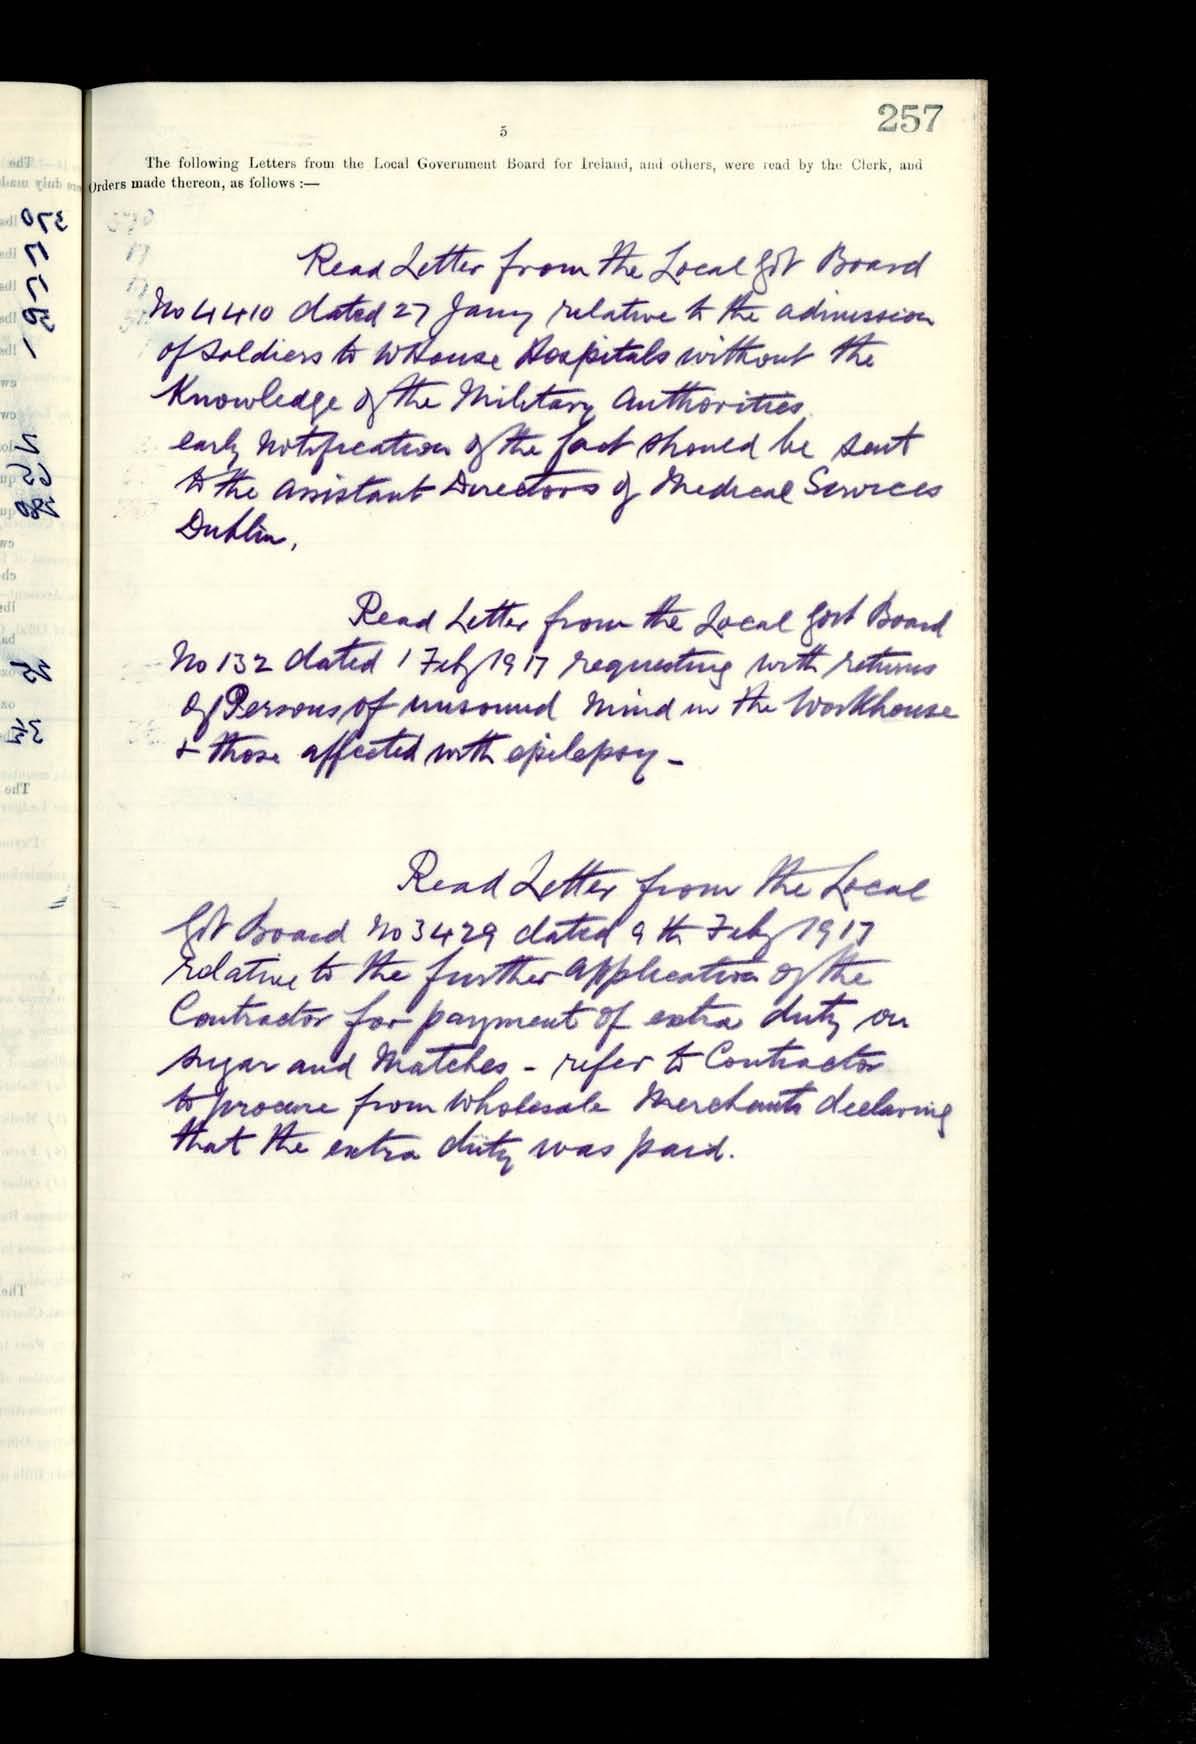 257
5
The following Letters from the Local Government Board for Ireland, and others, were read by the Clerk, and
Orders made thereon, as follows :—
Read Letter from the Local Govt Board
No 4410 dated 27 Jany relative to the admission
of Soldiers to WHouse Hospitals without the
Knowledge of the Military Authorities
early notification of the fact should be sent
to the Assistant Directors of Medical Services
Dublin,
Read Letter from the Local Govt Board
No 132 dated 1 Feby 1917 requesting with returns
of Persons of unsound Mind in the Workhouse
& those affected with epilepsy -
Read Letter from the Local
Govt Board No 3429 dated 9th Feby 1917
relative to the further Application of the
Contractor for payment of extra duty on
sugar and Matches - refer to Contractor
to procure from Wholesale Merchants declaring
that the extra duty was paid.